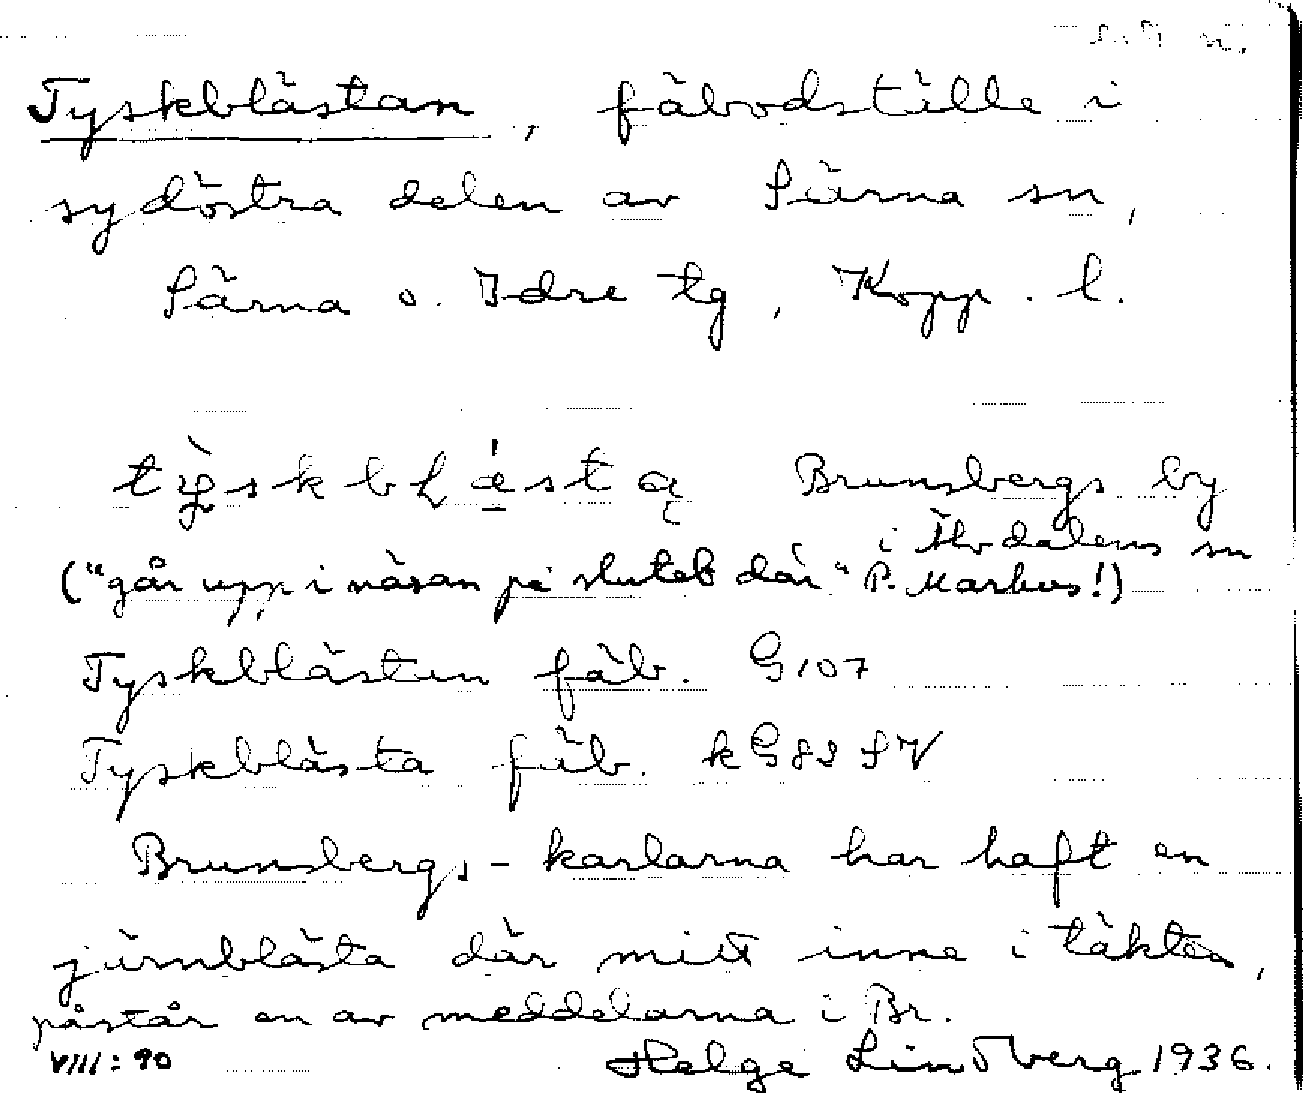 Tyskblästan, fäbodställe i
sydöstra delen av Särna sn,
Särna o. Idre tg, Kopp. l.
Brunsbergs by
i Älvdalens sn
("går upp i näsan på slutet där" P. Markus!)
Tyskblästen fäb. G107
Tyskblästa fäb. kG82 SV
Brunsbergs-karlarna har haft en
järnblästa där mitt inne i täkten,
påstår en av meddelarna i Br.
VIII: 90 Helge Lindberg 1936.